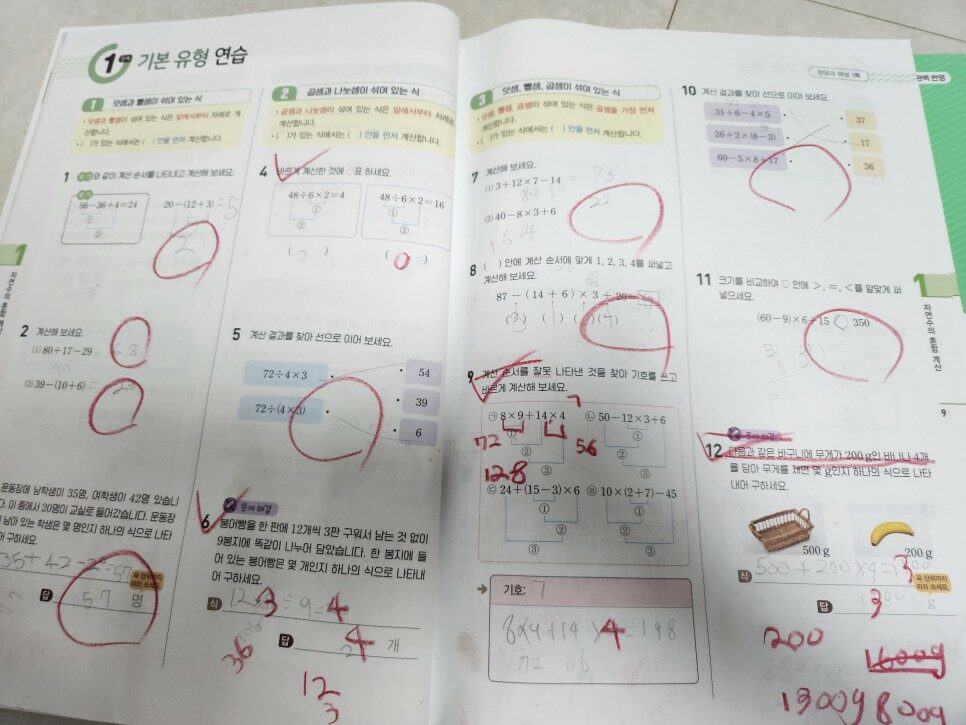 1 기본 유형 연습
1 덧셈과 뺄셈이 섞여 있는 식
• 덧셈과 뺄셈이 섞여 있는 식은 앞에서부터 차례로 계
산합니다.
• ( )가 있는 식에서는 ( ) 안을 먼저 계산합니다.
1 보기와 같이 계산 순서를 나타내고 계산해 보세요.
보기
56-36+4=24
①
②
20-(12+3)=5
2 계산해 보세요.
(1) 80+17-29=
(2) 39-(10+6)=
운동장에 남학생이 35명, 여학생이 42명 있습니
다. 이 중에서 20명이 교실로 들어갔습니다. 운동장
남아 있는 학생은 몇 명인지 하나의 식으로 나타
어 구하세요.
꼭 단위까지
따라 쓰세요.
답 57 명
1
자연수의 혼합 계산
2 곱셈과 나눗셈이 섞여 있는 식
• 곱셈과 나눗셈이 섞여 있는 식은 앞에서부터 차례로
계산합니다.
• ( )가 있는 식에서는 ( ) 안을 먼저 계산합니다.
4 바르게 계산한 것에 표 하세요.
48÷6×2=4
①
②
48÷6×2=16
①
②
( ) (0)
5 계산 결과를 찾아 선으로 이어 보세요.
72÷4×3
72÷(4×3)
54
39
6
문제 해결
6 붕어빵을 한 판에 12개씩 3판 구워서 남는 것 없이
9봉지에 똑같이 나누어 담았습니다. 한 봉지에 들
어 있는 붕어빵은 몇 개인지 하나의 식으로 나타내
어 구하세요.
식 12×3÷9=4
답 4 개
36
12
3
3 덧셈, 뺄셈, 곱셈이 섞여 있는 식
• 덧셈, 뺄셈, 곱셈이 섞여 있는 식은 곱셈을 가장 먼저
계산합니다.
• ( )가 있는 식에서는 ( ) 안을 먼저 계산합니다.
7 계산해 보세요.
(1) 3+12×7-14 = 73
(2) 40-8×3+6
22
8 ( ) 안에 계산 순서에 맞게 1, 2, 3, 4를 써넣고
계산해 보세요.
87 - (14 + 6) × 3 + 20
(3) (1) (2) (4)
9 계산 순서를 잘못 나타낸 것을 찾아 기호를 쓰고
바르게 계산해 보세요.
㉠ 8×9+14×4
①
②
③
72
56
128
㉡ 50-12×3+6
①
②
③
㉢ 24+(15-3)×6
①
②
③
㉣ 10×(2+7)-45
①
②
③
기호: ㄱ
8×9+14×4=198
72
10 계산 결과를 찾아 선으로 이어 보세요.
31+6-4×5
26+2×(8-3)
60-5×8+17
37
17
36
11 크기를 비교하여 ○ 안에 >, =, <를 알맞게 써
넣으세요.
(60-9)×6+15 < 350
문제 해결
12 다음과 같은 바구니에 무게가 200 g인 바나나 4개
를 담아 무게를 재면 몇 g인지 하나의 식으로 나타
내어 구하세요.
500 g
200 g
식 500+200×4=1300
꼭 단위까지
따라 쓰세요.
답 1300 g
200
1600g
1300g 800g
정답과 해설 1쪽
완벽 반영
1
자연수의 혼합 계산
9